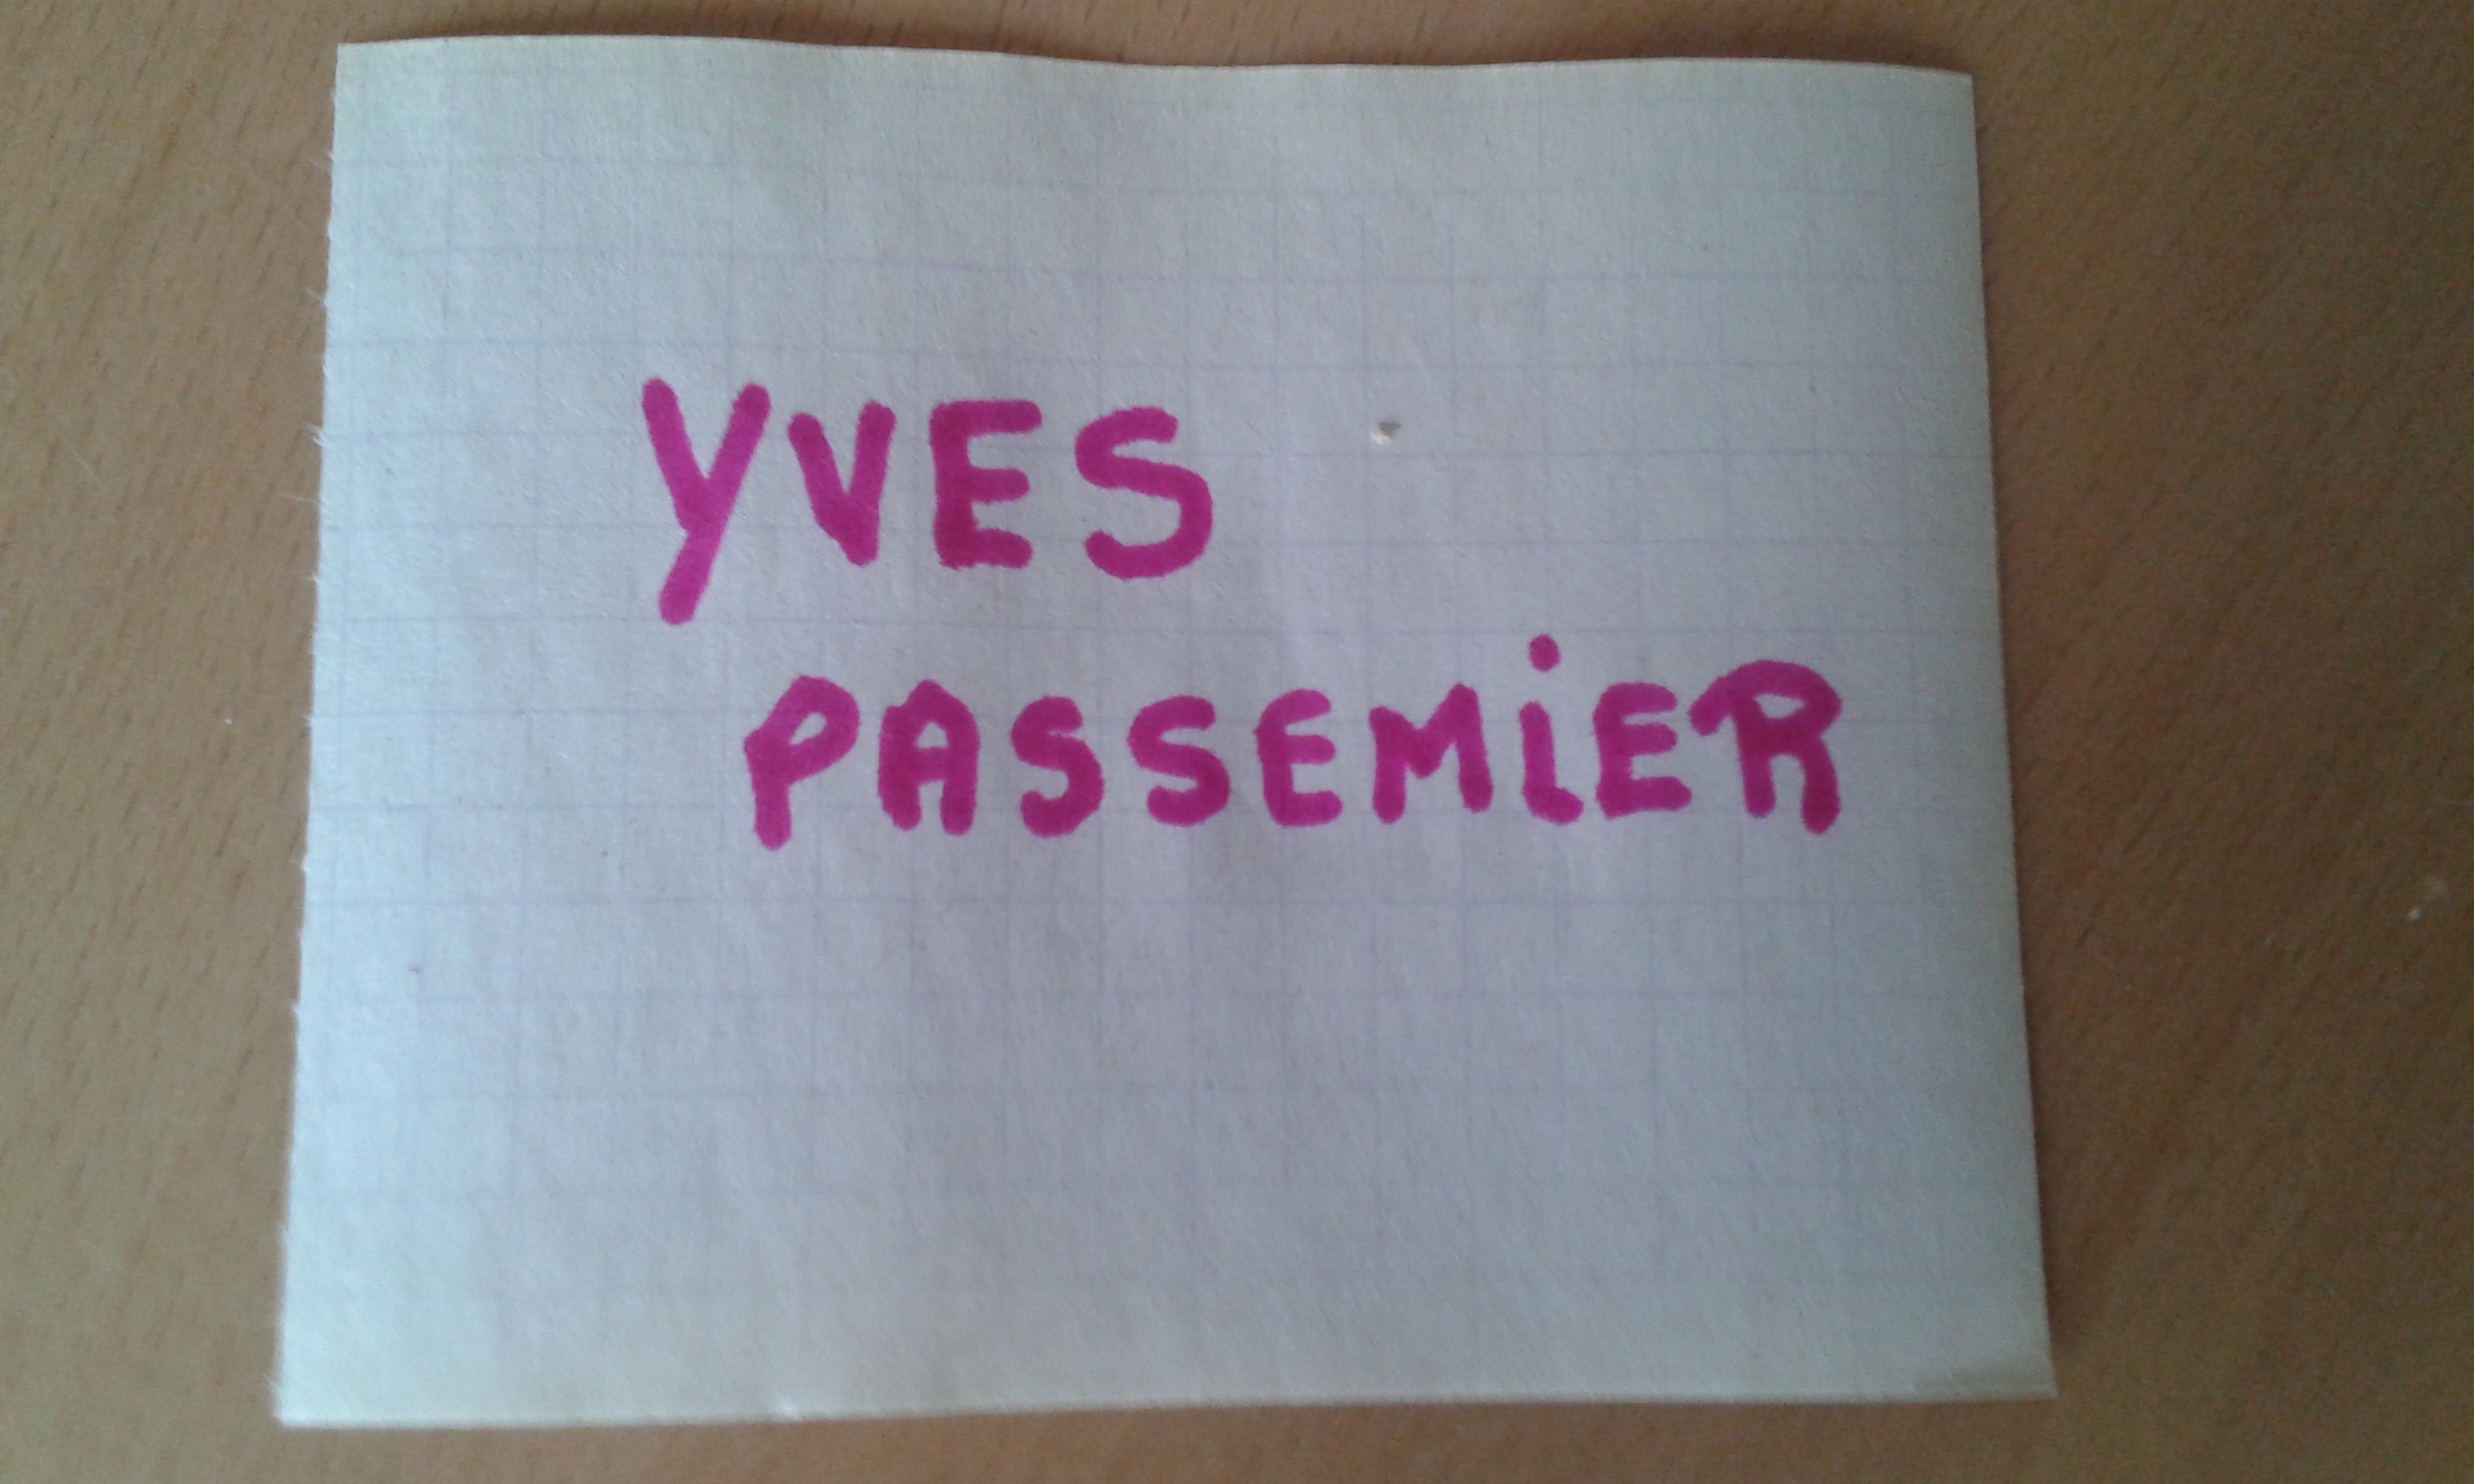 YVES
PASSEMiER